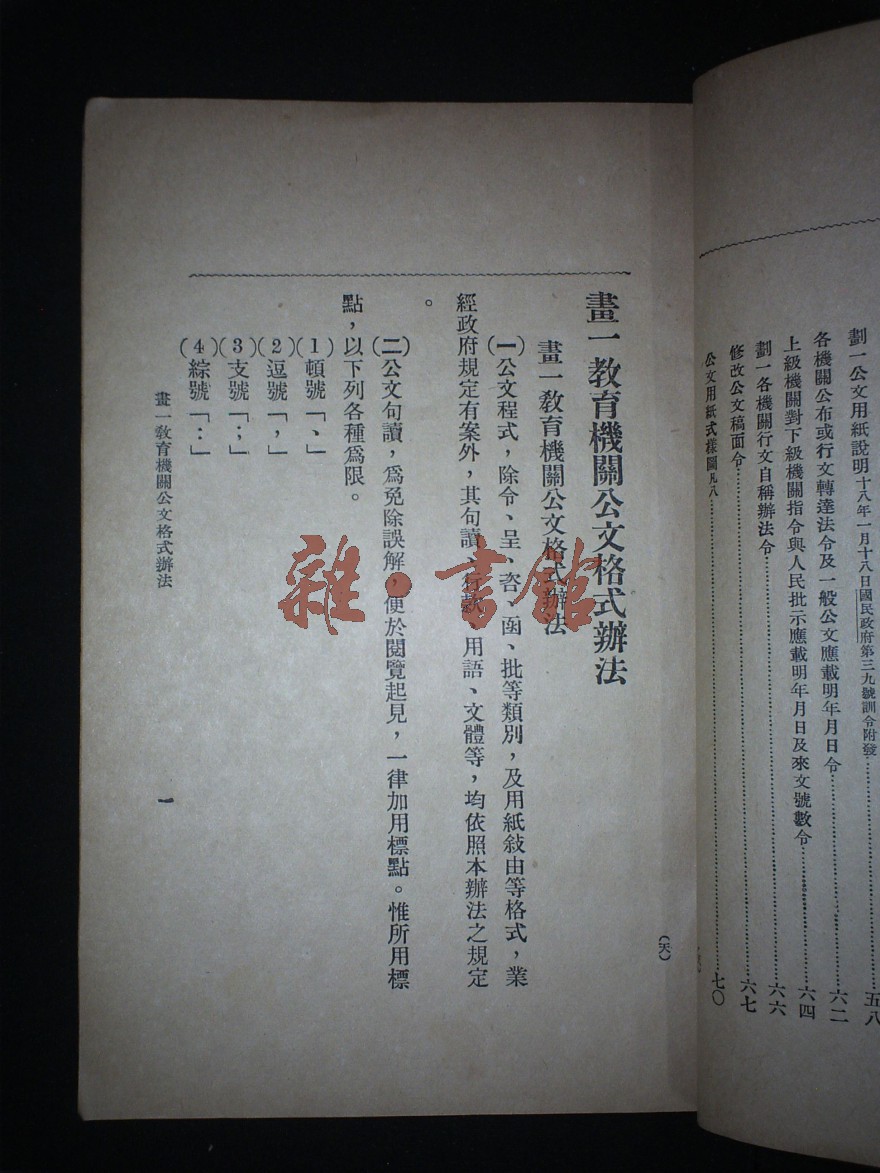 劃一公文用紙說明十八年一月十八日國民政府第三九號訓令附發……五八
各機關公布或行文轉達法令及一般公文應載明年月日令……六二
上級機關對下級機關指令與人民批示應載明年月日及來文號數令……六四
劃一各機關行文自稱辦法令……六六
修改公文稿面令……六七
公文用紙式樣圖凡八……七〇
(天)
畫一教育機關公文格式辦法
畫一教育機關公文格式辦法
(一)公文程式，除令、呈、咨、函、批等類別，及用紙敍由等格式，業
經政府規定有案外，其句讀、行款、用語、文體等，均依照本辦法之規定
。
(二)公文句讀，爲免除誤解，便於閱覽起見，一律加用標點。惟所用標
點，以下列各種爲限。
(1)頓號「、」
(2)逗號「，」
(3)支號「；」
(4)綜號「：」
畫一教育機關公文格式辦法
一
雜·書館